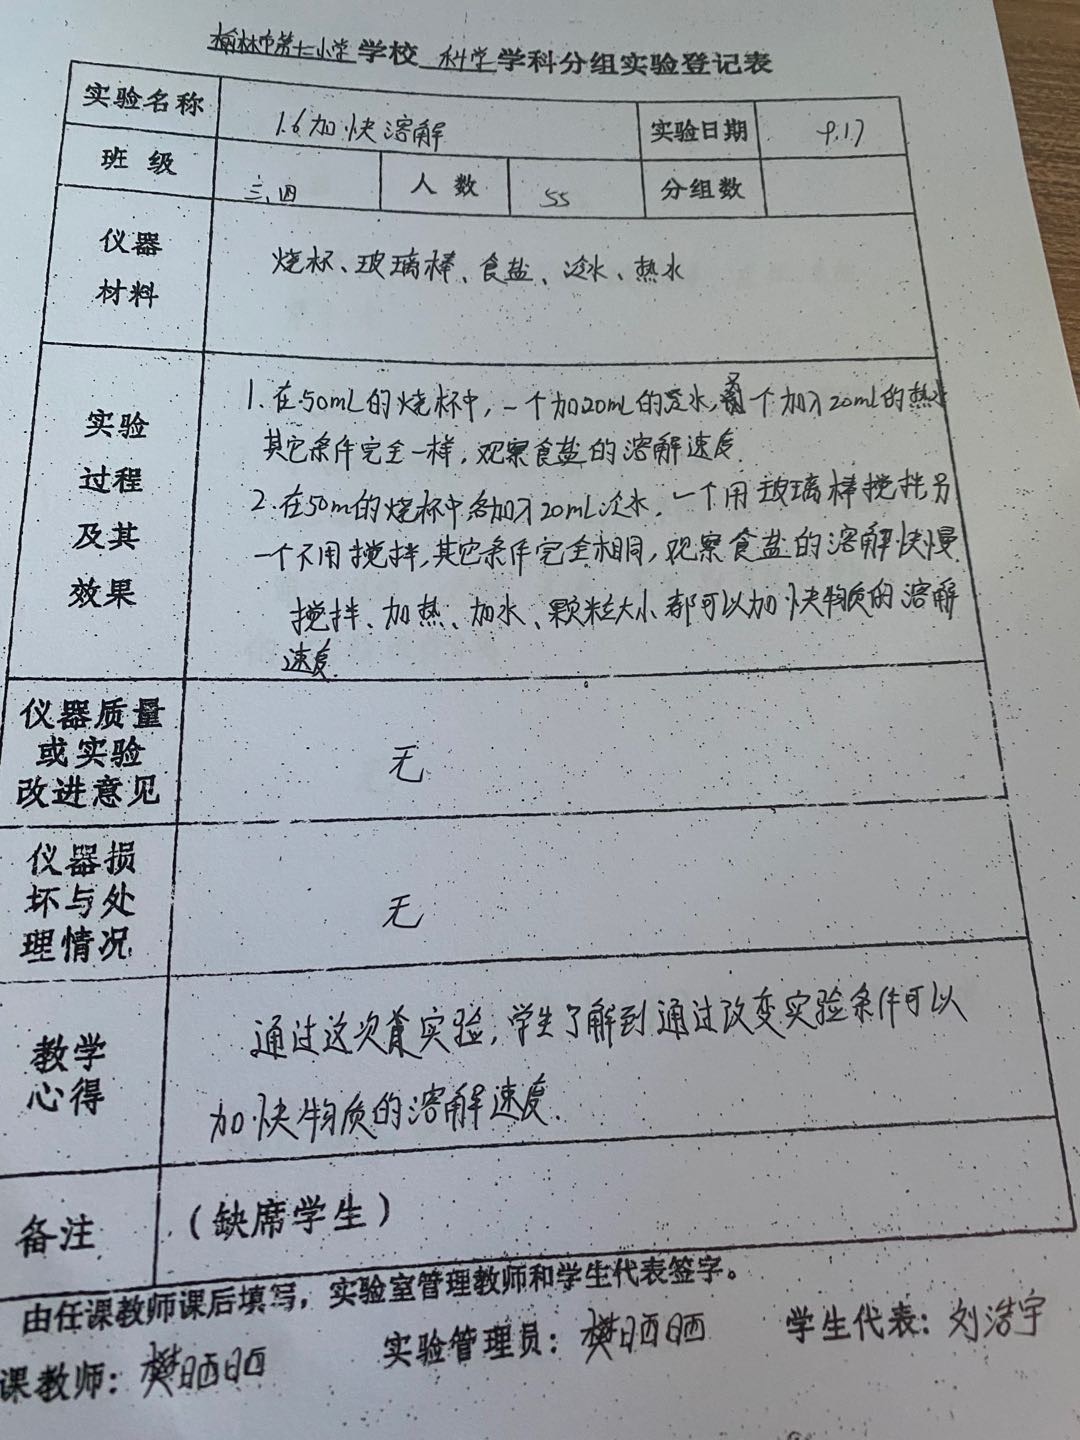 榆林市第七小学学校 科学学科分组实验登记表
实验名称 1.6加快溶解 实验日期 9.17
班级 三、四 人数 55 分组数
仪器
材料
烧杯、玻璃棒、食盐、冷水、热水
实验
过程
及其
效果
1.在50mL的烧杯中,一个加20mL的冷水,另一个加入20mL的热水
其它条件完全一样,观察食盐的溶解速度.
2.在50m的烧杯中各加入20mL冷水,一个用玻璃棒搅拌另
一个不用搅拌,其它条件完全相同,观察食盐的溶解快慢
搅拌、加热、加水、颗粒大小都可以加快物质的溶解
速度.
仪器质量
或实验
改进意见
无
仪器损
坏与处
理情况
无
教学
心得
通过这次实验,学生了解到通过改变实验条件可以
加快物质的溶解速度.
备注 (缺席学生)
由任课教师课后填写,实验室管理教师和学生代表签字。
课教师:樊晒晒 实验管理员:樊晒晒 学生代表:刘浩宇